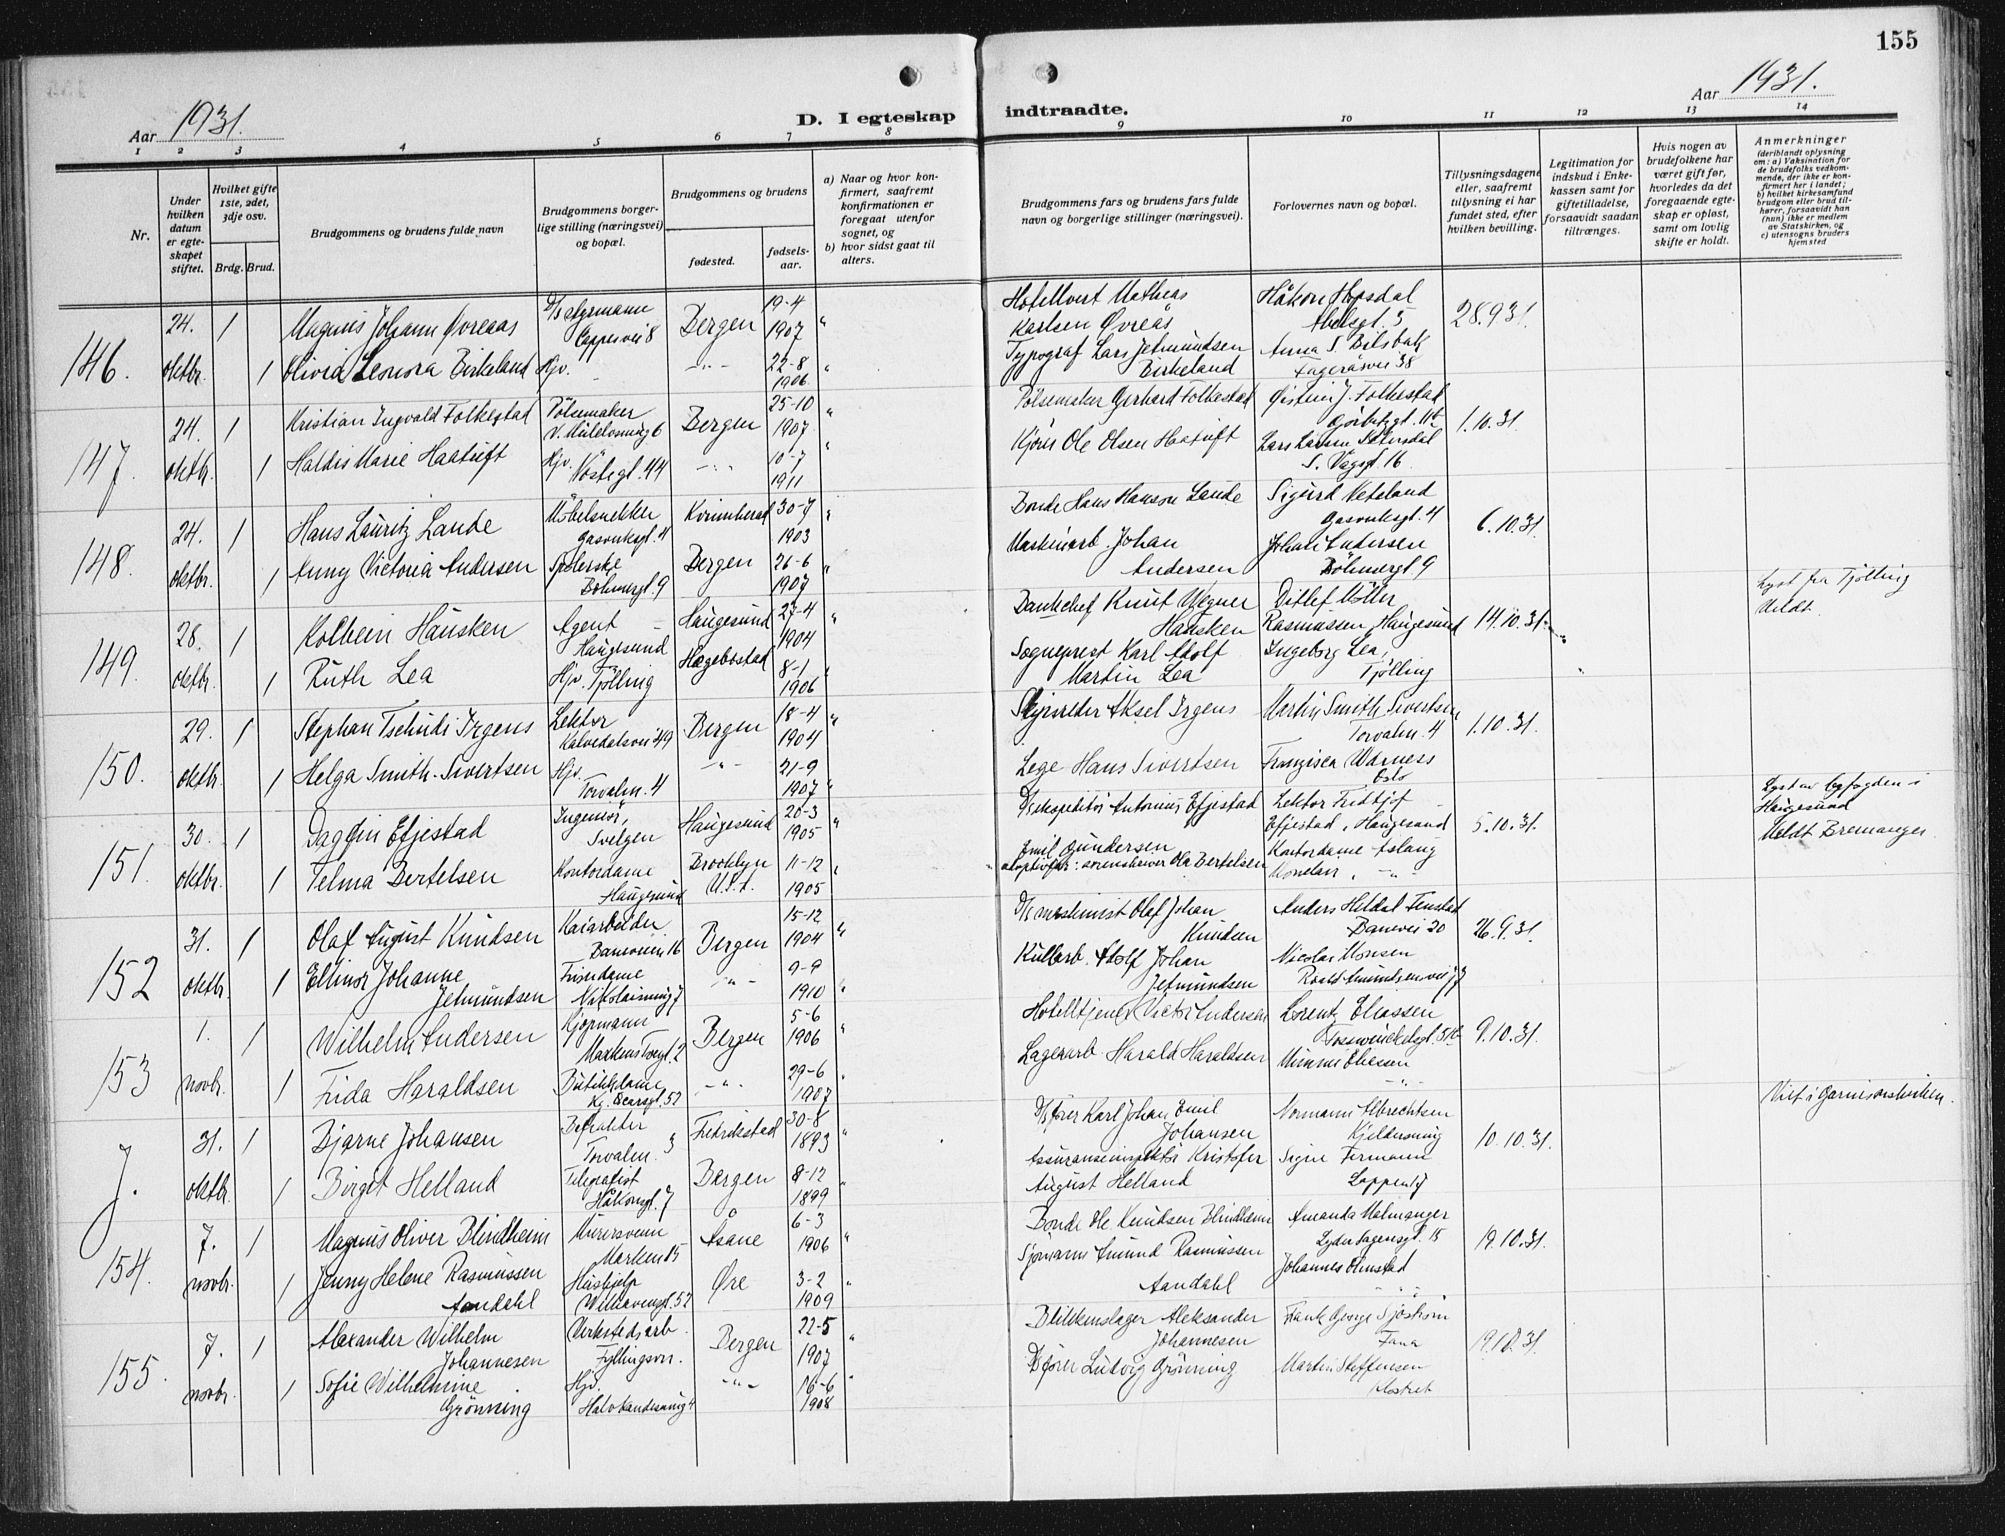 155
Aar 1931.
D. I egteskap indtraadte.
Aar 1931.
1 2 3 4 5 6 7 8 9 10 11 12 13 14
Nr.
Under hvilken datum er egteskapet stiftet.
Hvilket gifte 1ste, 2det, 3dje osv.
Brdg. Brud.
Brudgommens og brudens fulde navn
Brudgommens borgerlige stilling (næringsvei) og bopæl.
Brudgommens og brudens
fødested.
fødselsaar.
a) Naar og hvor konfirmert, saafremt konfirmationen er foregaat utenfor sognet, og
b) hvor sidst gaat til alters.
Brudgommens fars og brudens fars fulde navn og borgerlige stillinger (næringsvei).
Forlovernes navn og bopæl.
Tillysningsdagene eller, saafremt tillysning ei har fundet sted, efter hvilken bevilling.
Legitimation for indskud i Enkekassen samt for giftetilladelse, forsaavidt saadan tiltrænges.
Hvis nogen av brudefolkene har været gift før, hvorledes da det foregaaende egteskap er opløst, samt om lovlig skifte er holdt.
Anmerkninger
(deriblandt oplysning om: a) Vaksination for de brudefolks vedkommende, der ikke er konfirmert her i landet;
b) hvilket kirkesamfund brudgom eller brud tilhører, forsaavidt han (hun) ikke er medlem av Statskirken, og
c) utensogns bruders hjemsted
146. 24. oktbr. 1 Magnus Johann Øvreaas D/s styrmann Cappesvei 8 Bergen 19-4 1907 " Hotellvert Mathias Karlsen Øvreås Håkon Hopsdal Abelsgt. 5 28.9 31.
1 Olivia Leonora Birkeland Hjv. - -"- 22-8 1906 " Typograf Lars Jetmundsen Birkeland Anna S. Bilsbak Fageråsvei 38
147. 24. oktbr. 1 Kristian Ingvald Folkestad Pølsemaker Bergen 25-10 1907 " Pølsemaker Gerhard Folkestad Øistein J. Folkestad 1.10.31.
1 Haldis Marie Haatuft Hjv. Nøstegt. 44 -"- 10-7 1911 " Kjører Ole Olsen Haatuft S. Vagsgt. 16
148. 24. oktbr. 1 Hans Lauritz Lande Møbelsnekker Gasverksgt. 4 Kvinnherad 30-7 1903 " Bonde Hans Hanson Lande Sigurd Neteland Gasverksgt. 4 6.10.31.
1 Anny Victoria Andersen Spolerske Bøhmergt. 9 Bergen 26-6 1907 " Maskinarb. Johan Andersen Johan Andersen Bøhmergt 9
149. 28. oktbr. 1 Kolbein Hausken Agent - Haugesund Haugesund 27-4 1904 " Bankchef Knut Wegner Hausken Ditlef Møller Rasmussen, Haugesund 14.10.31. "
1 Ruth Lea Hjv. Tjølling Hægebostad 8-1 1906 " Sogneprest Karl Adolf Martin Lea Ingeborg Lea, Tjølling "
Lyst fra Tjølling
Meldt.
150. 29. oktbr. 1 Stephan Tschudi Irgens Lektor Kalvedalsvei 49 Bergen 18-4 1904 " Skipsreder Aksel Irgens Martin Smith Sivertsen Torvalm. 4 1.10.31.
1 Helga Smith-Sivertsen Hjv. Torvalm. 4 -"- 21-9 1907 " Lege Hans Sivertsen Oslo
151. 30. oktbr. 1 Dagfin Efjestad Ingeniør, Svelgen Haugesund 20-3 1905 " D/s ekspeditør Antonius Efjestad Lektor Fridtjof Efjestad, Haugesund 5.10.31.
1 Telma Bertelsen Kontordame Haugesund Brooklyn U.S.A. 11-12 1905 " Emil Gundersen adoptivfar: sorenskriver Ola Bertelsen Kontordame Aslaug -"-
Lyst av byfogden i
Haugesund
Meldt Bremanger
152 31. oktbr. 1 Olaf August Knudsen Kaiarbeider. Baneveien 16 Bergen 15-12 1904 " D/s maskinist Olaf Johan Knudsen Anders Heldal Tenstad Banevei 20 26.9.31.
1 Ellinor Johanne Jetmundsen Frisørdame Nikolaismug 7 -"- 9-9 1910 " Kullarb. Adolf Johan Jetmundsen Nicolai Monsen Roald Amundsensvei 77
153 1. novbr. 1 Wilhelm Andersen Kjøpmann Bergen 5-6 1906 " Hotelltjener Victor Andersen Lorentz Eliassen 9.10.31.
1 Frida Haraldsen Butikkdame Kg. Oscarsgt. 52 -"- 29-6 1907 " Lagerarb Harald Haraldsen Minnie Eliessen -"-
J. 31. oktbr. 1 Bjarne Johansen Befrakter Torvalm. 3 Fredrikstad 30-8 1893 " D/s fører Karl Johan Emil Johansen Normann Albrechtsen Kjeldersmug 10.10.31.
1 Birgit Helland Telegrafist Håkonsgt. 7 Bergen 8-12 1899 " Assuranseinspektør Kristofer August Helland Signe Fermann Lappen 17
Viet i Garnisonskirken.
154. 7. novbr. 1 Magnus Oliver Blindheim Murersvenn Marken 25 Åsane 6-3 1906 " Bonde Ole Knudsen Blindheim Amanda Malmanger Lyder Sagensgt. 15 19.10.31.
1 Jenny Helene Rasmussen Aandahl Hushjelp Welhavensgt. 52 Øre 3-2 1909 " Sjømann Amund Rasmussen Aandahl Johannes Olmstad " "
155. 7. novbr. 1 Alexander Wilhelm Johannesen Verkstedsarb. Fyllingsvn. Bergen 22-5 1907 " Blikkenslager Aleksander Johannesen Frank George Sjøstrøm Fana 19.10.31.
1 Sofie Wilhelmine Grønning Hjv. Halvkandesmug 4 -"- 16-6 1908 " D/s fører Ludvig Grønning Martin Steffensen Klostret